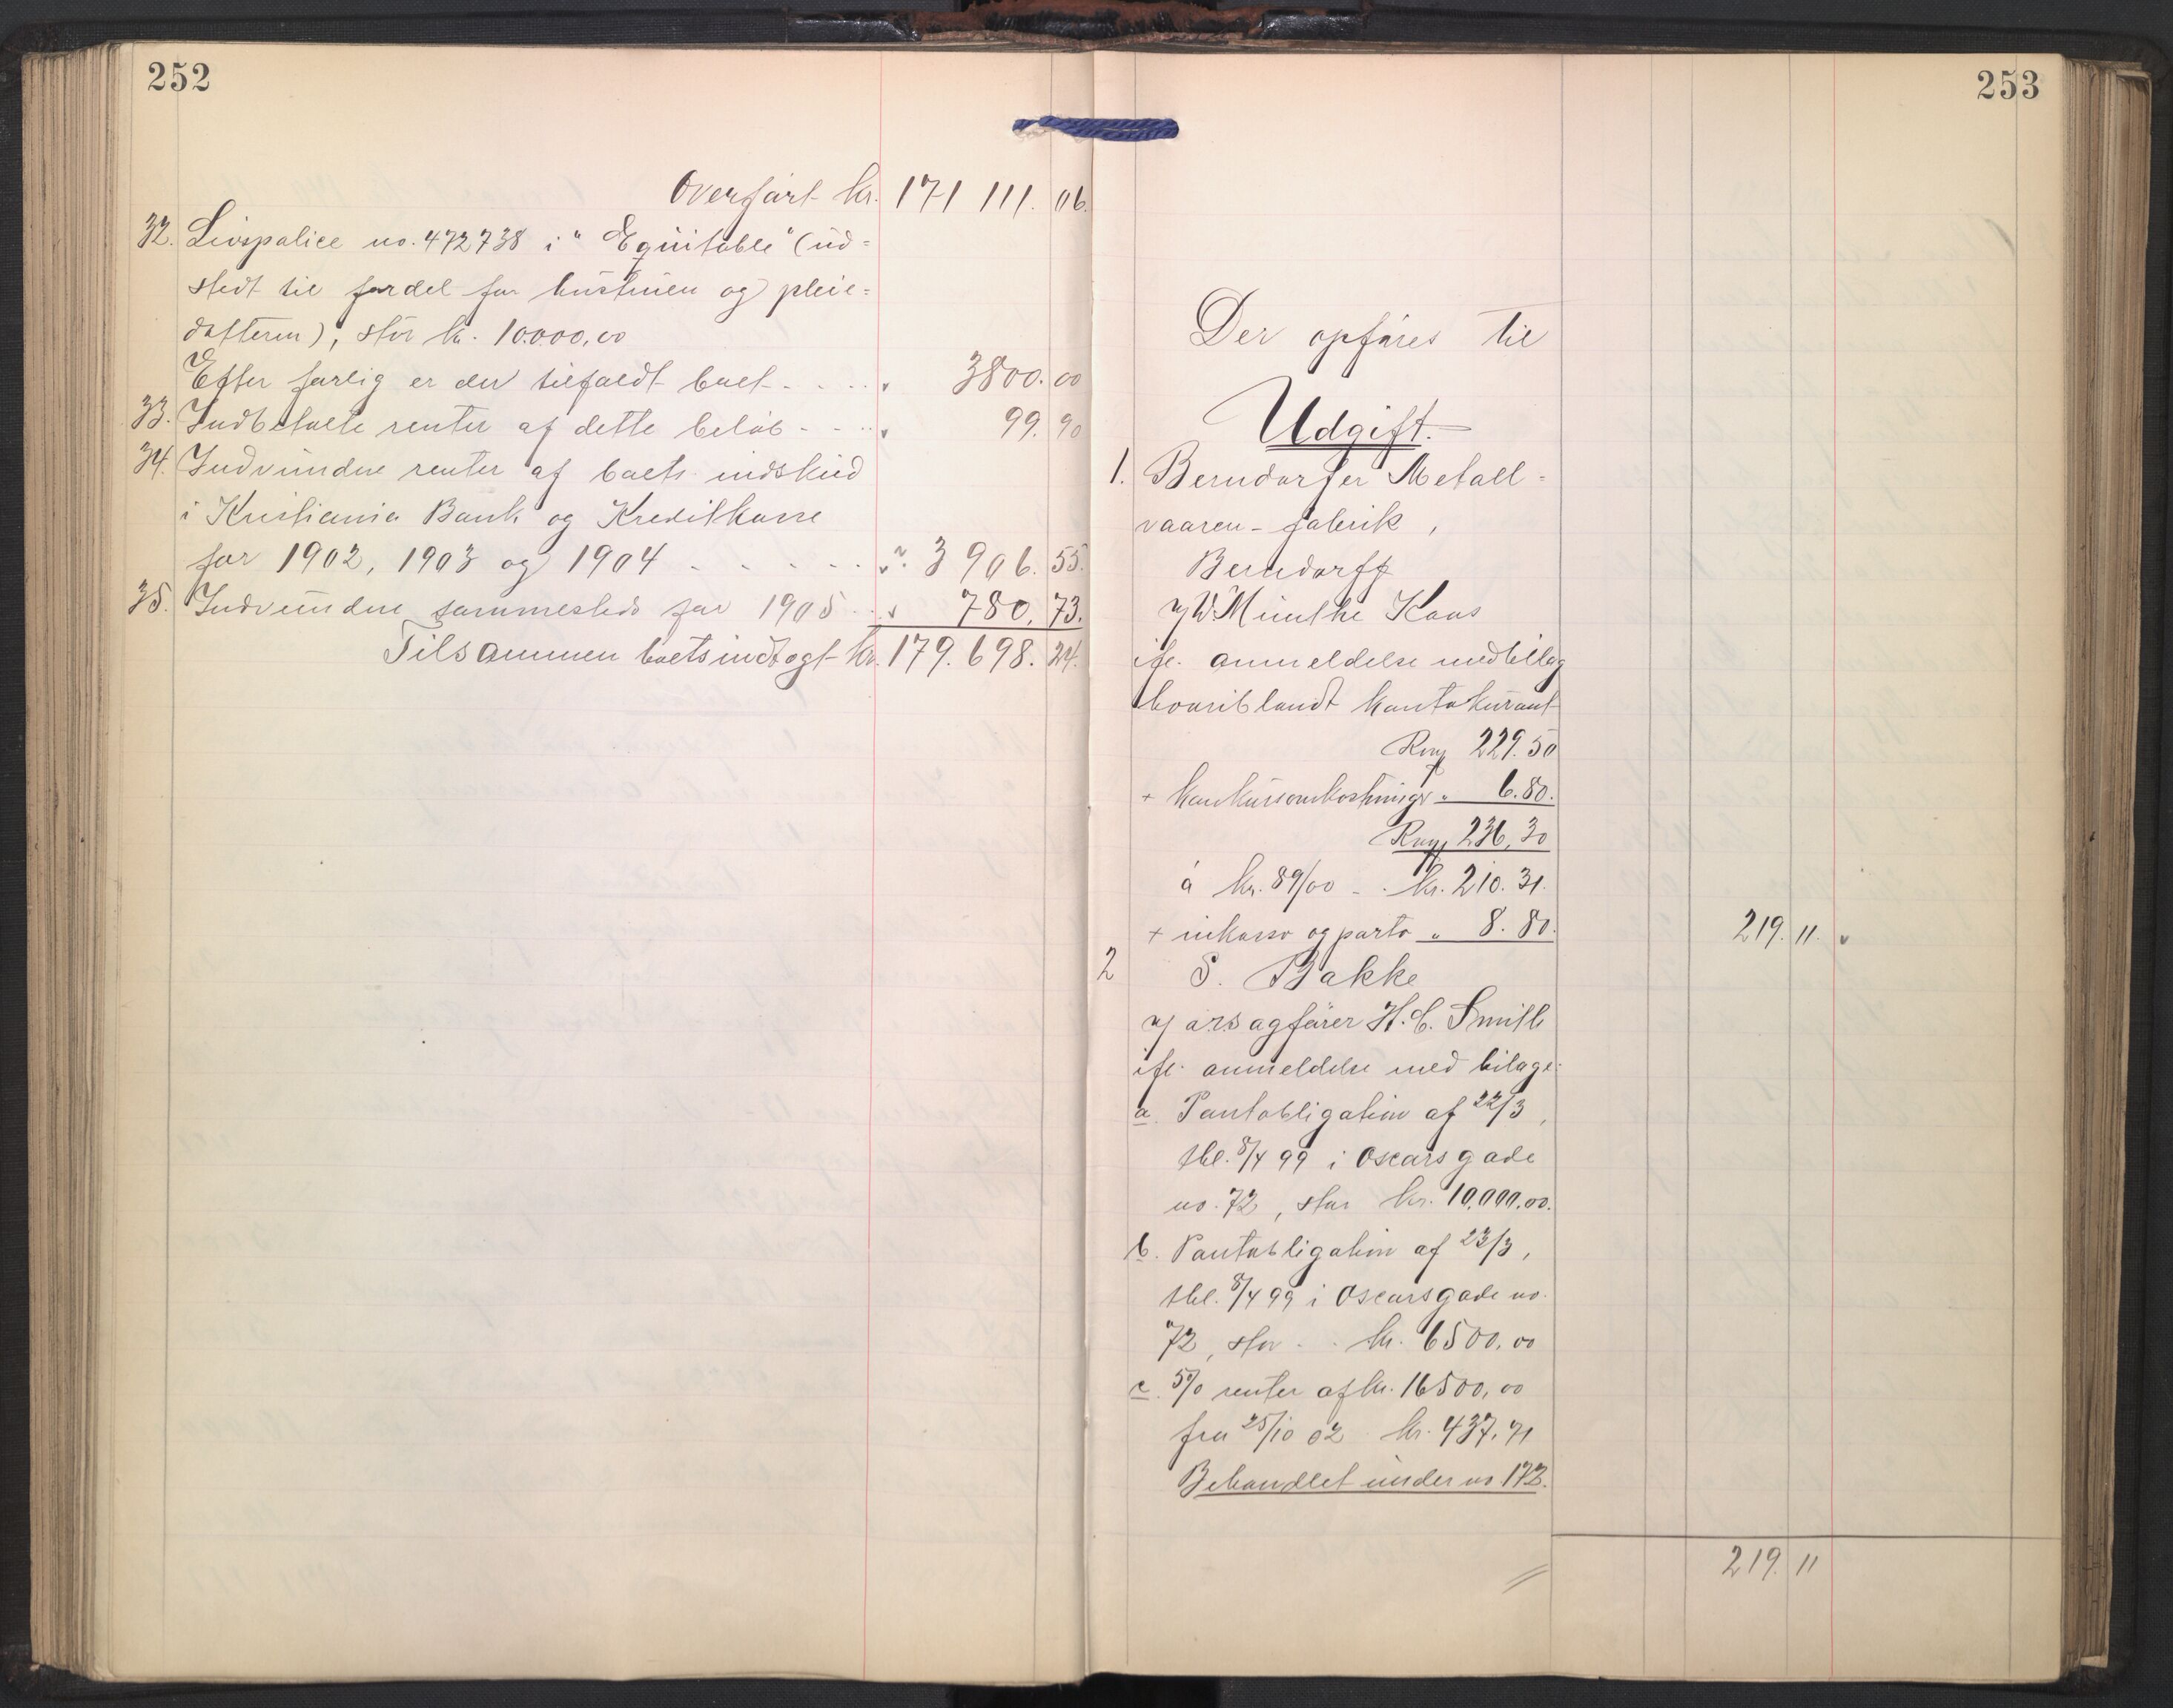 252
Overført kr. 171 111. 06.
32. Livspolice no. 472738 i "Equitable" (ud=
stedt til fordel for hustruen og pleie=
datteren), stor kr. 10.000,00
Efter forlig er der tilfaldt boet - . . . " 3800. 00
33. Indbetalte renter af dette beløb - - . . " 99. 90
34. Indvundne renter af boets indskud
i Kristiania Bank og Kreditkasse
for 1902, 1903 og 1904 - - - - - . " 3 906. 55.
35. Indvundne sammesteds for 1905 . . " 780. 73.
Tilsammen boets indtægt kr. 179. 698. 24.
253
Der opføres til
Udgift.
1. Berndorfer Metall=
vaaren-fabrik,
Berndorff
v/ W. Munthe Kaas
ifl. anmeldelse med bilag
hvoriblandt kontokurant
Rm 229. 50
+ konkursomkostninger " 6. 80.
Rm 236, 30
á kr. 89/00 - . kr. 210. 31.
+ inkasso og porto " 8. 80. 219. 11.
2 S. Bakke
v/ o.r.sagfører H. C. Smith
ifl. anmeldelse med bilage:
a. Pantobligation af 22/3,
tbl. 8/4 99 i Oscarsgade
no. 72, stor kr. 10.000.00.
b. Pantobligation af 23/3,
tbl. 8/4 99 i Oscarsgade no.
72, stor - . kr. 6500,00
c. 5% renter af kr. 16500,00
fra 25/10 02 kr. 437,71
Behandlet under no. 172.
219. 11